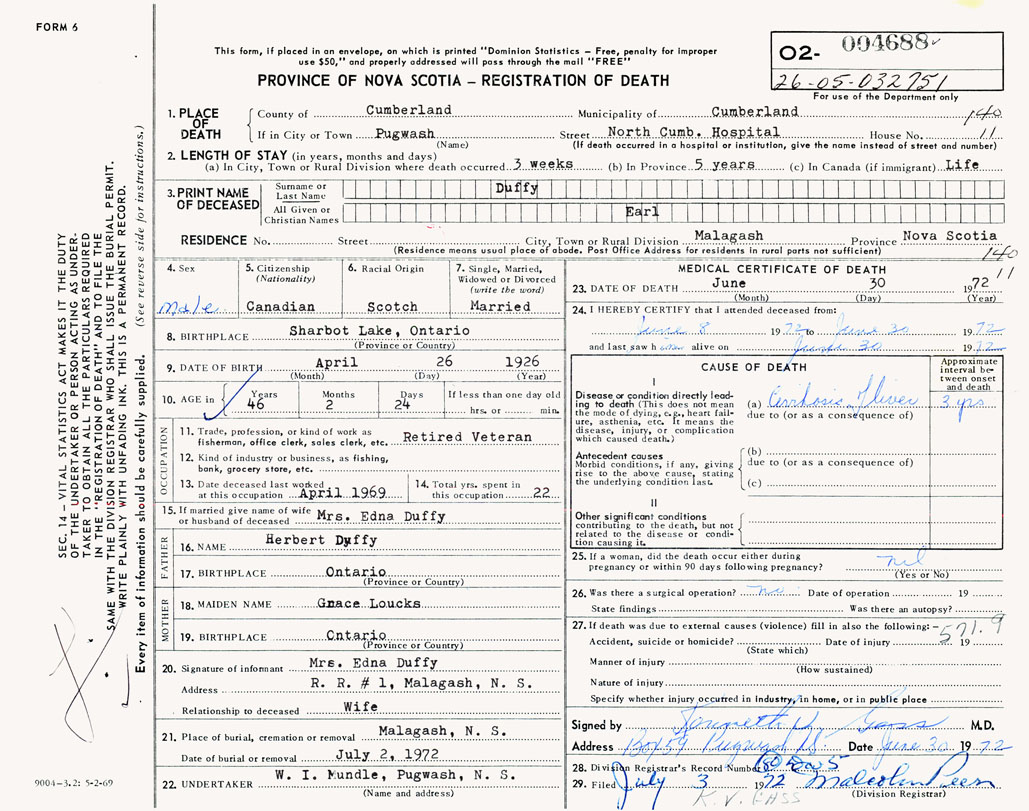 FORM 6
This form, if placed in an envelope, on which is printed "Dominion Statistics – Free, penalty for improper
use $50," and properly addressed will pass through the mail "FREE"
PROVINCE OF NOVA SCOTIA – REGISTRATION OF DEATH
02- 004688
26-05-032751
For use of the Department only
1. PLACE OF DEATH
County of Cumberland Municipality of Cumberland 140
If in City or Town Pugwash Street North Cumb. Hospital House No. 11
(Name) (If death occurred in a hospital or institution, give the name instead of street and number)
2. LENGTH OF STAY (in years, months and days)
(a) In City, Town or Rural Division where death occurred 3 weeks (b) In Province 5 years (c) In Canada (if immigrant) Life
3. PRINT NAME OF DECEASED
Surname or Last Name Duffy
All Given or Christian Names Earl
RESIDENCE No. Street City, Town or Rural Division Malagash Province Nova Scotia
(Residence means usual place of abode. Post Office Address for residents in rural parts not sufficient) 140
11
4. Sex Male
5. Citizenship (Nationality) Canadian
6. Racial Origin Scotch
7. Single, Married, Widowed or Divorced (write the word) Married
8. BIRTHPLACE Sharbot Lake, Ontario
(Province or Country)
9. DATE OF BIRTH April 26 1926
(Month) (Day) (Year)
10. AGE in Years 46 Months 2 Days 24 If less than one day old hrs. or min.
OCCUPATION
11. Trade, profession, or kind of work as
fisherman, office clerk, sales clerk, etc. Retired Veteran
12. Kind of industry or business, as fishing,
bank, grocery store, etc.
13. Date deceased last worked
at this occupation April 1969
14. Total yrs. spent in
this occupation 22
15. If married give name of wife
or husband of deceased Mrs. Edna Duffy
FATHER
16. NAME Herbert Duffy
17. BIRTHPLACE Ontario
(Province or Country)
MOTHER
18. MAIDEN NAME Grace Loucks
19. BIRTHPLACE Ontario
(Province or Country)
20. Signature of informant Mrs. Edna Duffy
Address R. R. # 1, Malagash, N. S.
Relationship to deceased Wife
21. Place of burial, cremation or removal Malagash, N. S.
Date of burial or removal July 2, 1972
22. UNDERTAKER W. I. Mundle, Pugwash, N. S.
(Name and address)
MEDICAL CERTIFICATE OF DEATH
23. DATE OF DEATH June 30 1972
(Month) (Day) (Year)
24. I HEREBY CERTIFY that I attended deceased from:
June 8 1972 to June 30 1972
and last saw him alive on June 30 1972
CAUSE OF DEATH
Approximate interval between onset and death
I
Disease or condition directly lead-
ing to death (This does not mean
the mode of dying, e.g., heart fail-
ure, asthenia, etc. It means the
disease, injury, or complication
which caused death.)
(a) Cirrhosis of liver 3 yrs
due to (or as a consequence of)
Antecedent causes
Morbid conditions, if any, giving
rise to the above cause, stating
the underlying condition last.
(b)
due to (or as a consequence of)
(c)
II
Other significant conditions
contributing to the death, but not
related to the disease or condi-
tion causing it.
25. If a woman, did the death occur either during
pregnancy or within 90 days following pregnancy? nil
(Yes or No)
26. Was there a surgical operation? no Date of operation 19
State findings Was there an autopsy?
27. If death was due to external causes (violence) fill in also the following:– 571.9
Accident, suicide or homicide? Date of injury 19
(State which)
Manner of injury
(How sustained)
Nature of injury
Specify whether injury occurred in industry, in home, or in public place
Signed by Kenneth V. Gass M.D.
Address Box 59 Pugwash NS Date June 30 1972
28. Division Registrar's Record Number
29. Filed July 3 1972
(Division Registrar)
K. V. GASS
SEC. 14 – VITAL STATISTICS ACT MAKES IT THE DUTY
OF THE UNDERTAKER OR PERSON ACTING AS UNDER-
TAKER TO OBTAIN ALL THE PARTICULARS REQUIRED
IN THE "REGISTRATION OF DEATH" AND TO FILE THE
SAME WITH THE DIVISION REGISTRAR WHO SHALL ISSUE THE BURIAL PERMIT.
WRITE PLAINLY WITH UNFADING INK. THIS IS A PERMANENT RECORD.
Every item of information should be carefully supplied. (See reverse side for instructions.)
9004-3.2: 5-2-69